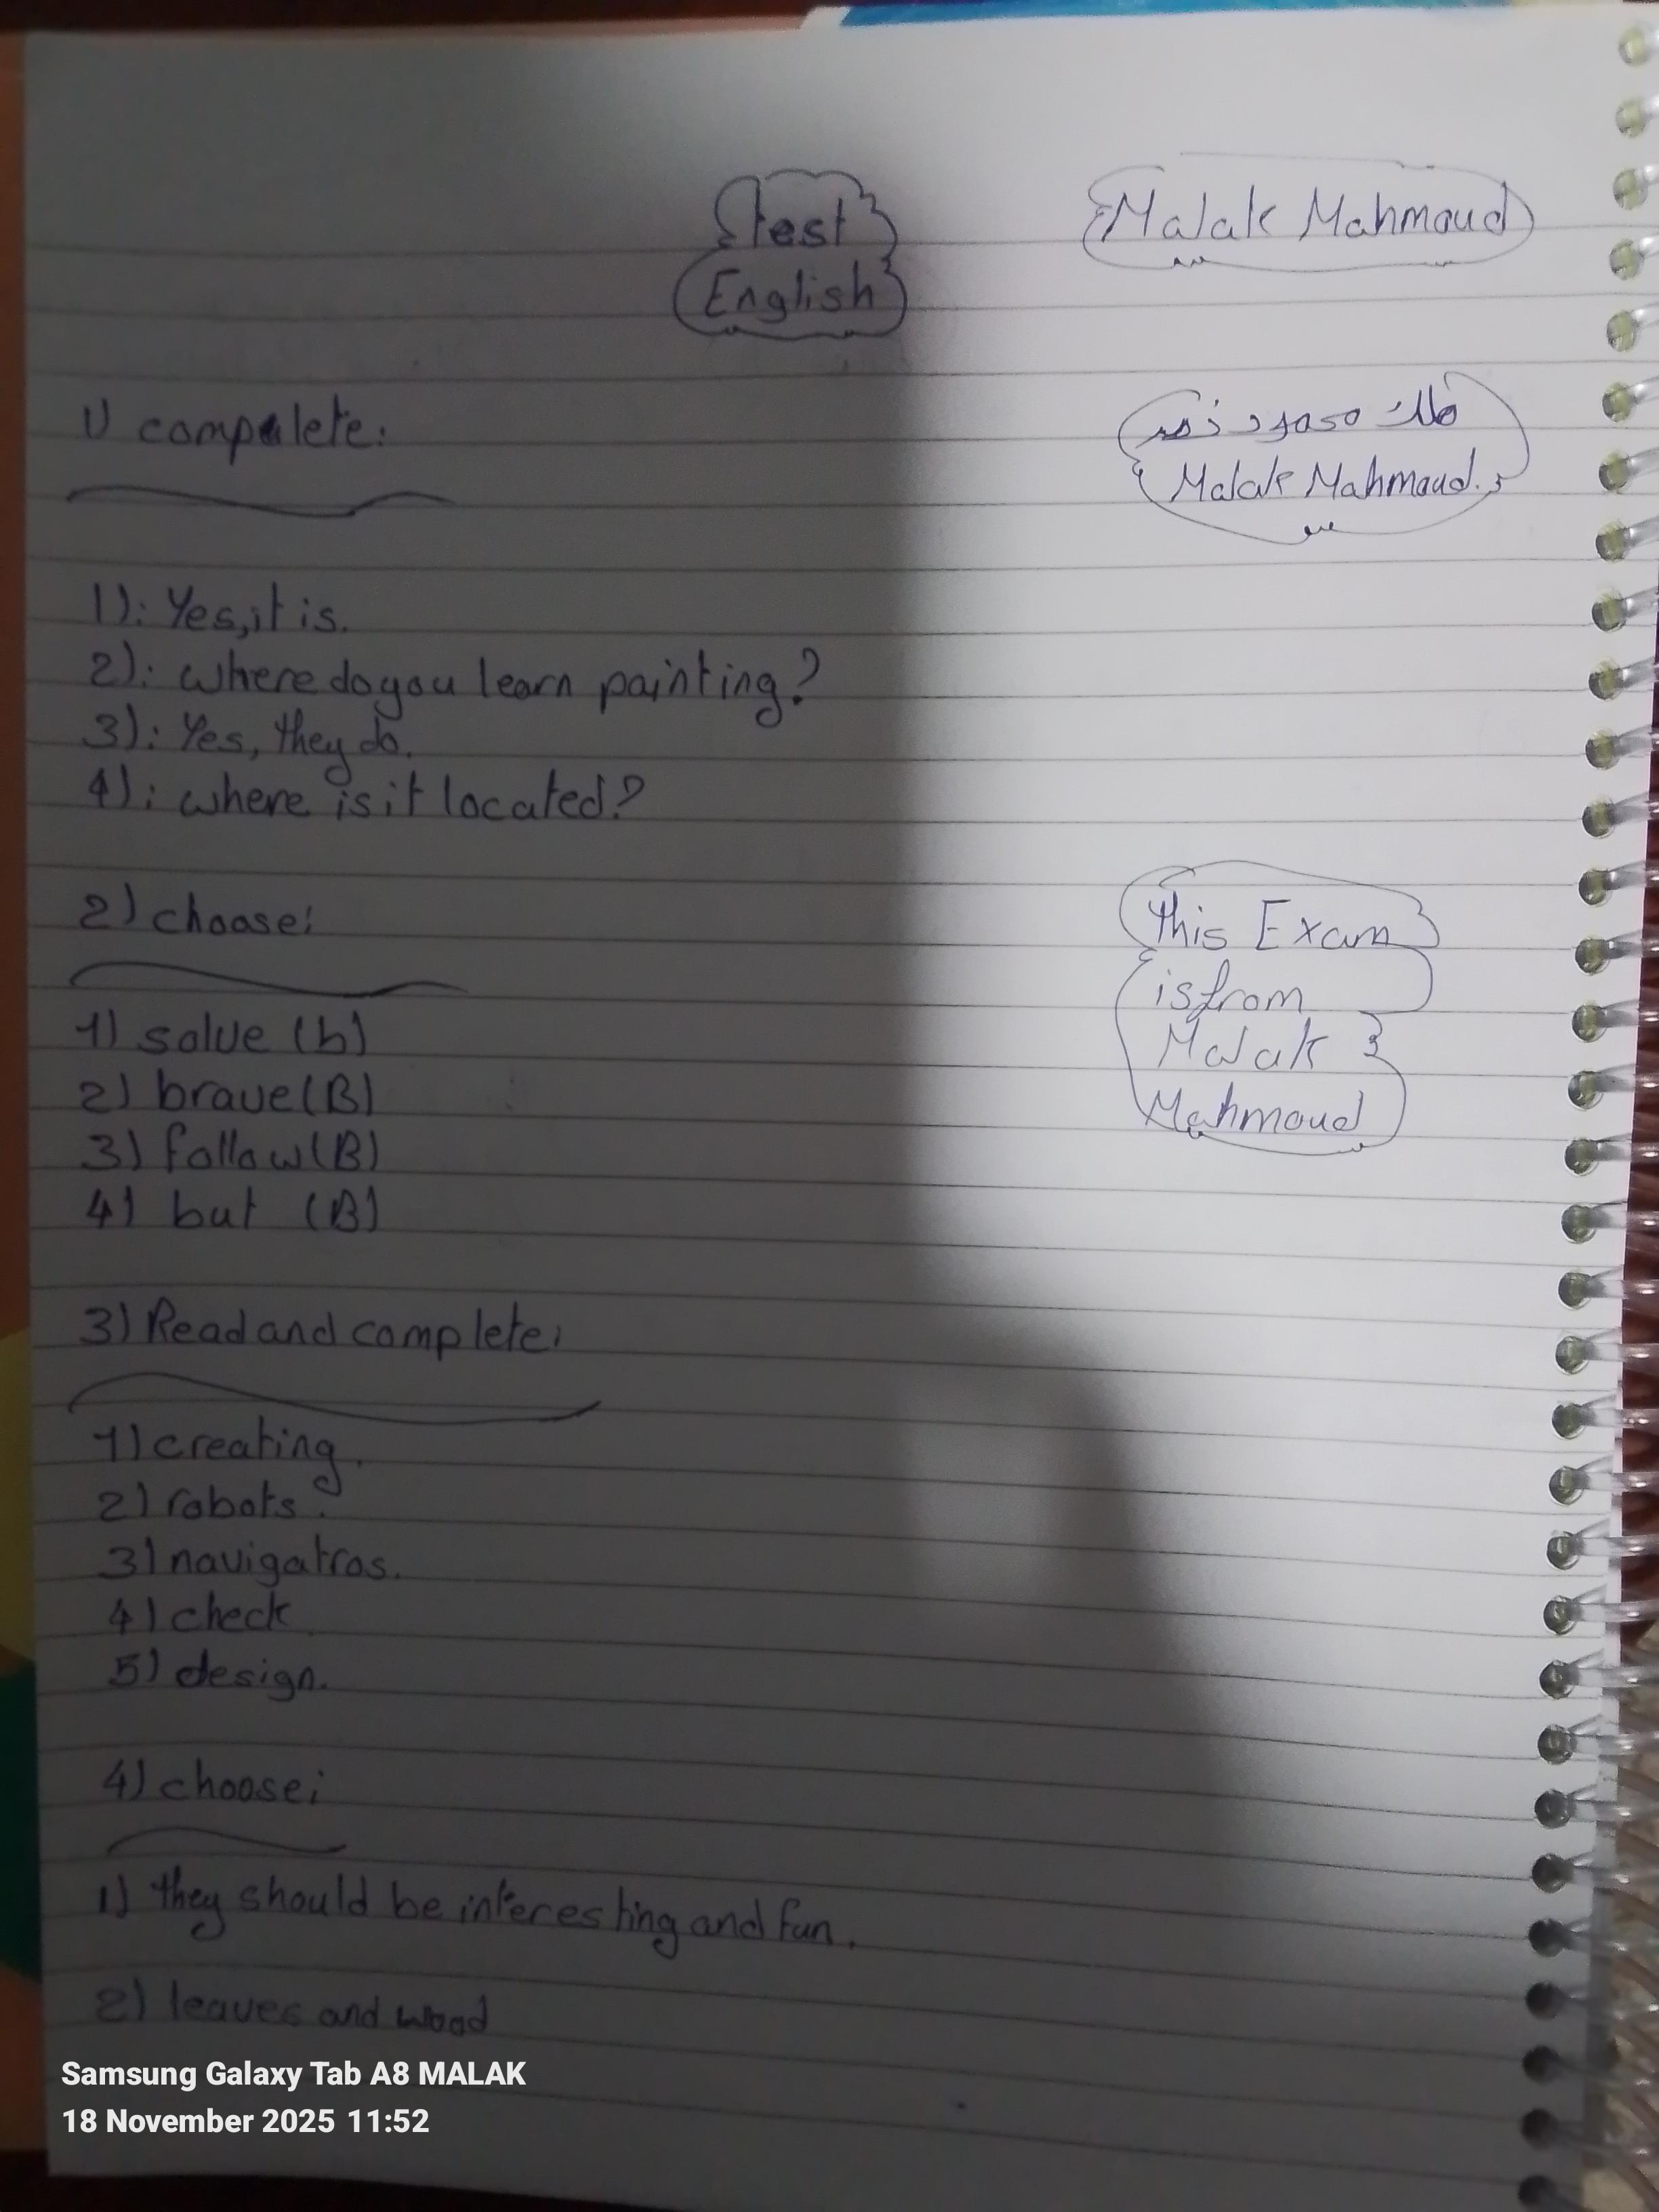 test
English
Malak Mahmoud
1) compelete:
ملك محمود
Malak Mahmoud.
1): Yes, it is.
2): where do you learn painting?
3): Yes, they do.
4): where is it located?
2) choose:
this Exam
is from
Malak
Mahmoud
1) solve (b)
2) brave (B)
3) follow (B)
4) but (B)
3) Read and complete:
1) creating.
2) robots.
3) navigatros.
4) check
5) design.
4) choose:
1) they should be interesting and fun.
2) leaves and wood
Samsung Galaxy Tab A8 MALAK
18 November 2025 11:52